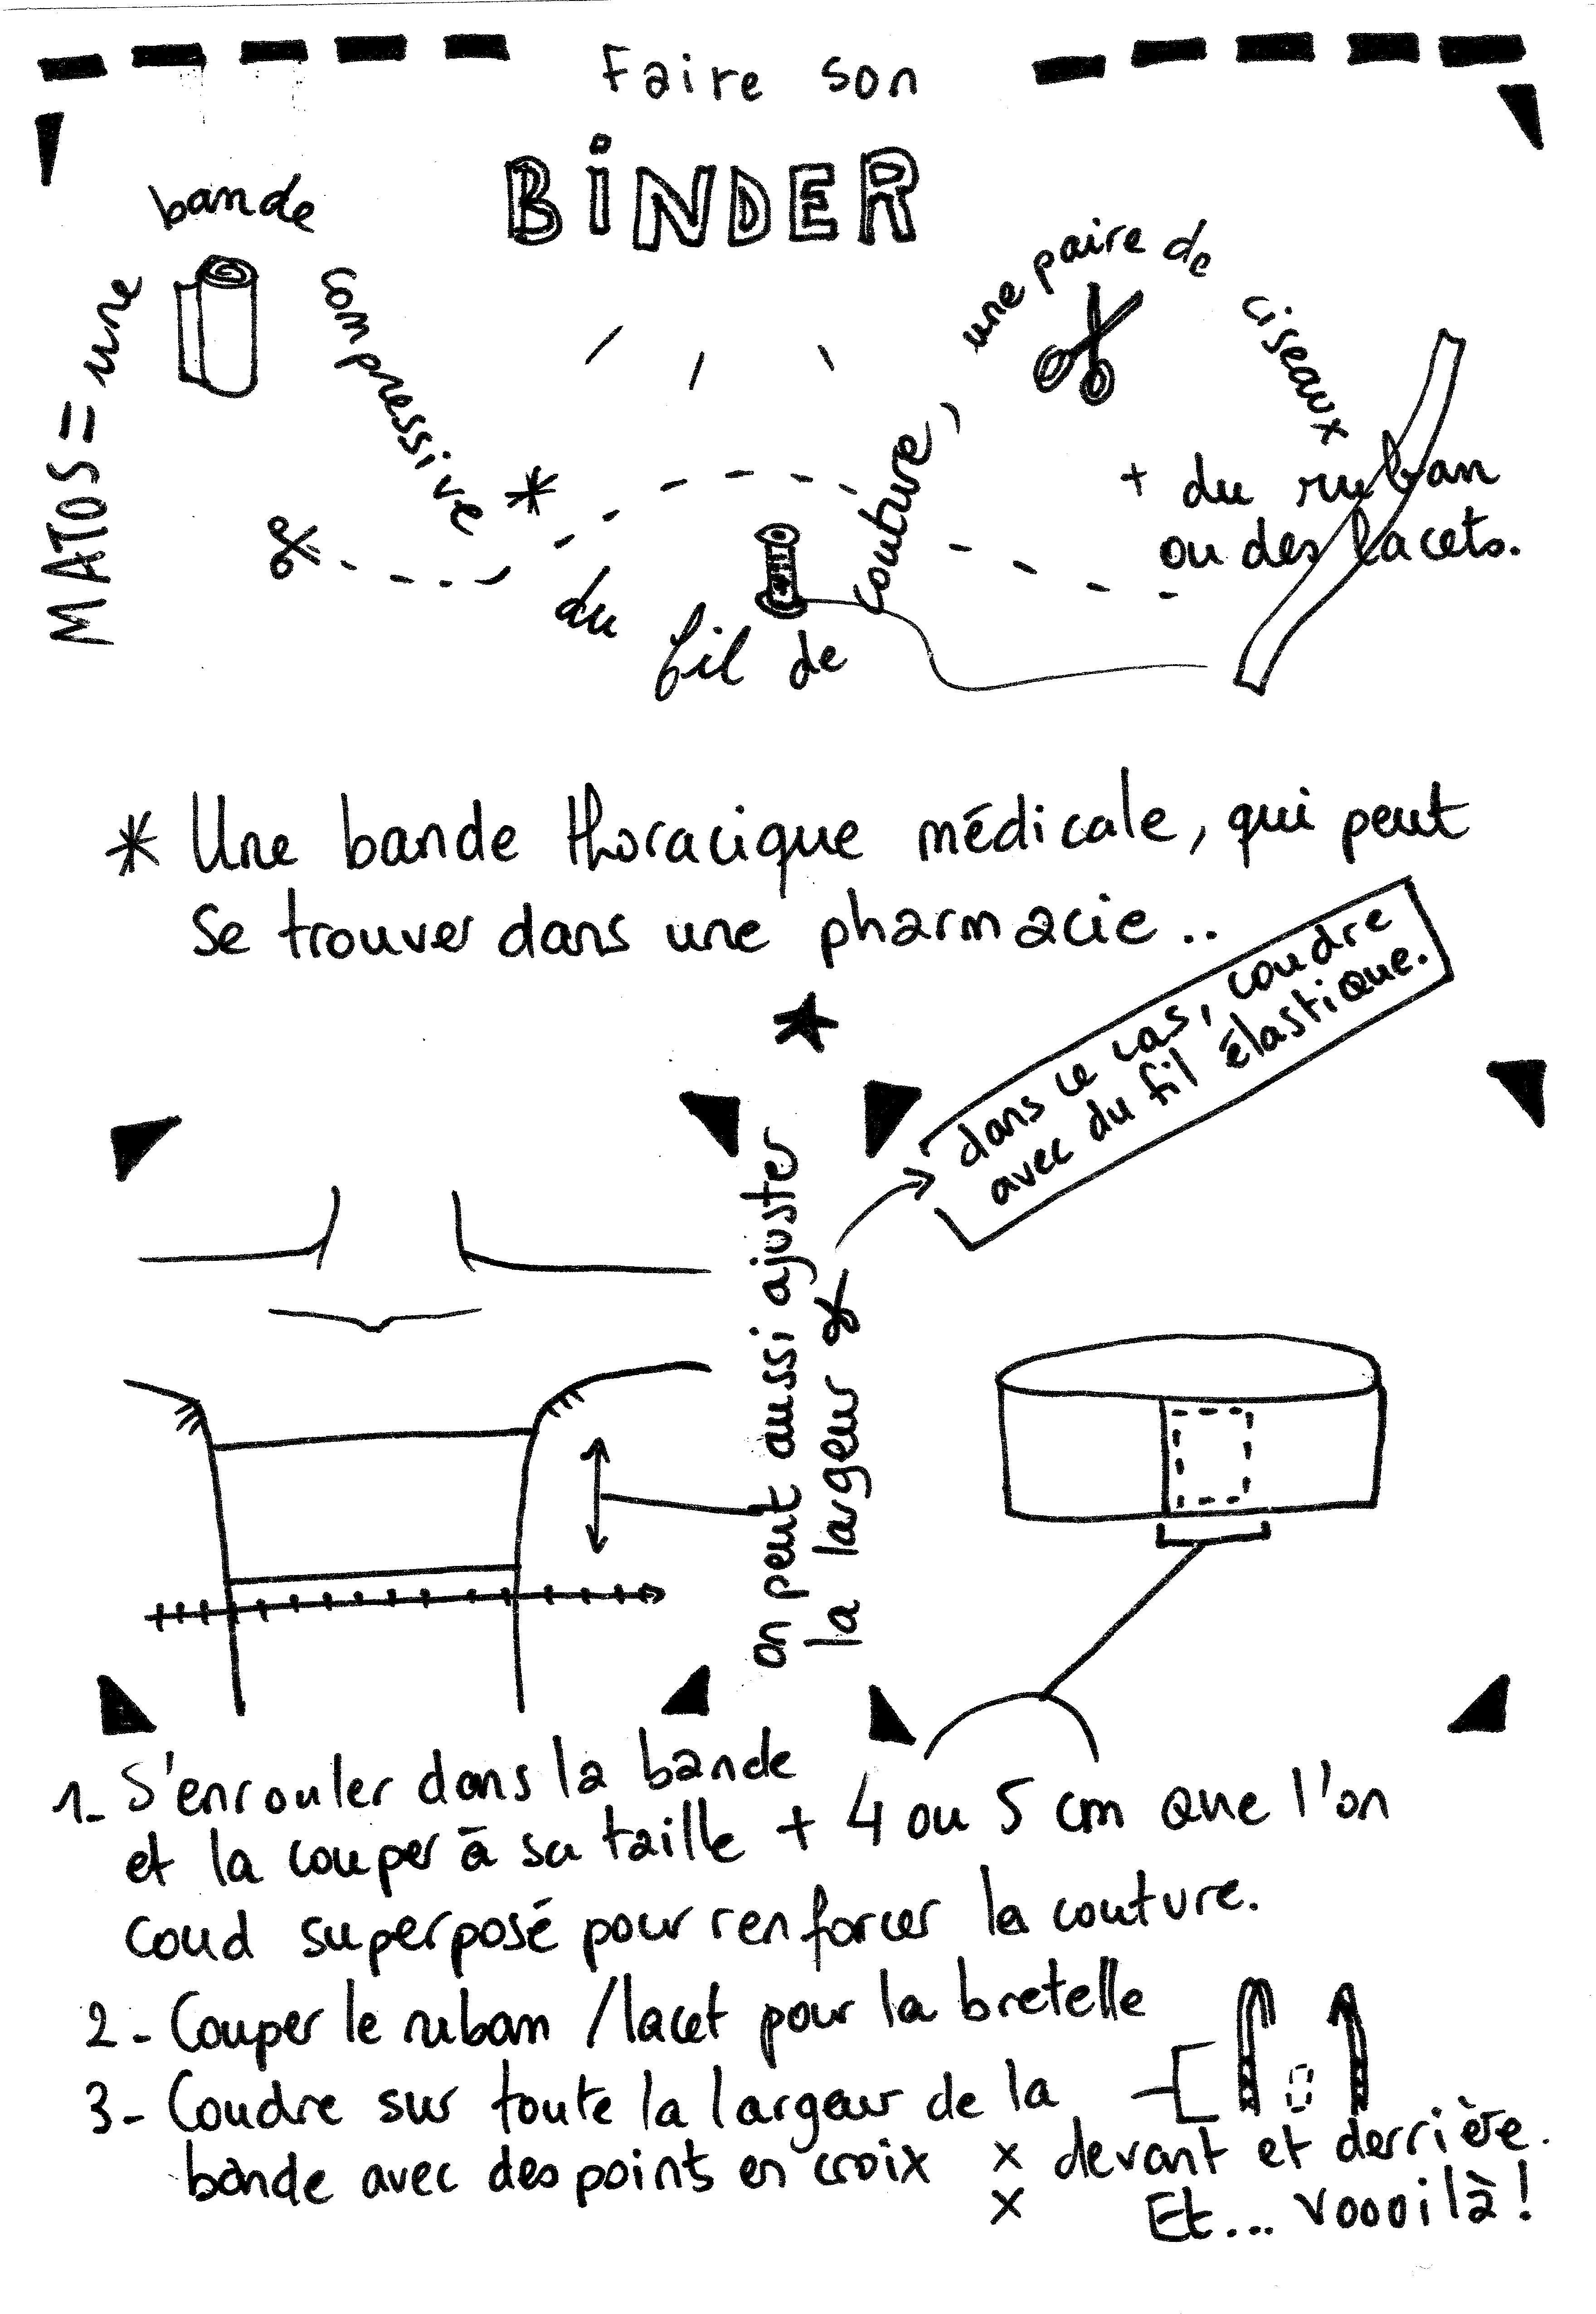 Faire son
BiNDER
MATOS = une bande compressive *
du fil de couture,
une paire de ciseaux
+ du ruban
ou des lacets.
* Une bande thoracique médicale, qui peut
se trouver dans une pharmacie..
on peut aussi ajuster
la largeur
dans ce cas, coudre
avec du fil élastique.
1- S'enrouler dans la bande
et la couper à sa taille + 4 ou 5 cm que l'on
coud superposé pour renforcer la couture.
2- Couper le ruban / lacet pour la bretelle
3- Coudre sur toute la largeur de la
bande avec des points en croix x devant et derrière.
x Et... voooilà !